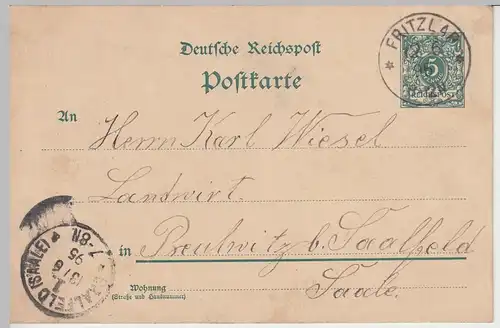 Deutsche Reichspost
Postkarte
FRITZLAR
5
An Herrn Karl Wiesel
Landwirt.
in Preulwitz b. Saalfeld
Saale.
Wohnung
(Straße und Hausnummer)
SAALFELD (SAALE)
13/6
95
7-8N